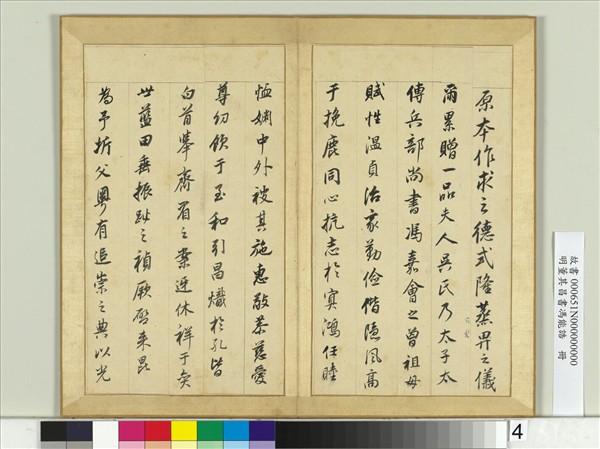 原本作求之德式隆烝畀之儀
爾累贈一品夫人吳氏乃太子太
傅兵部尚書馮嘉會之曾祖母
賦性溫貞治家勤儉偕隱風高
于挽鹿同心抗志於冥鴻任睦
恤婣中外被其施惠敬恭慈愛
尊幼飲于至和引昌熾於孔皆
白首舉齊眉之案迓休祥于奕
世藍田垂振趾之禎厥啟來昆
為予折父粵有追崇之典以光
故書000651N000000000
明董其昌書馮能誥 冊
4